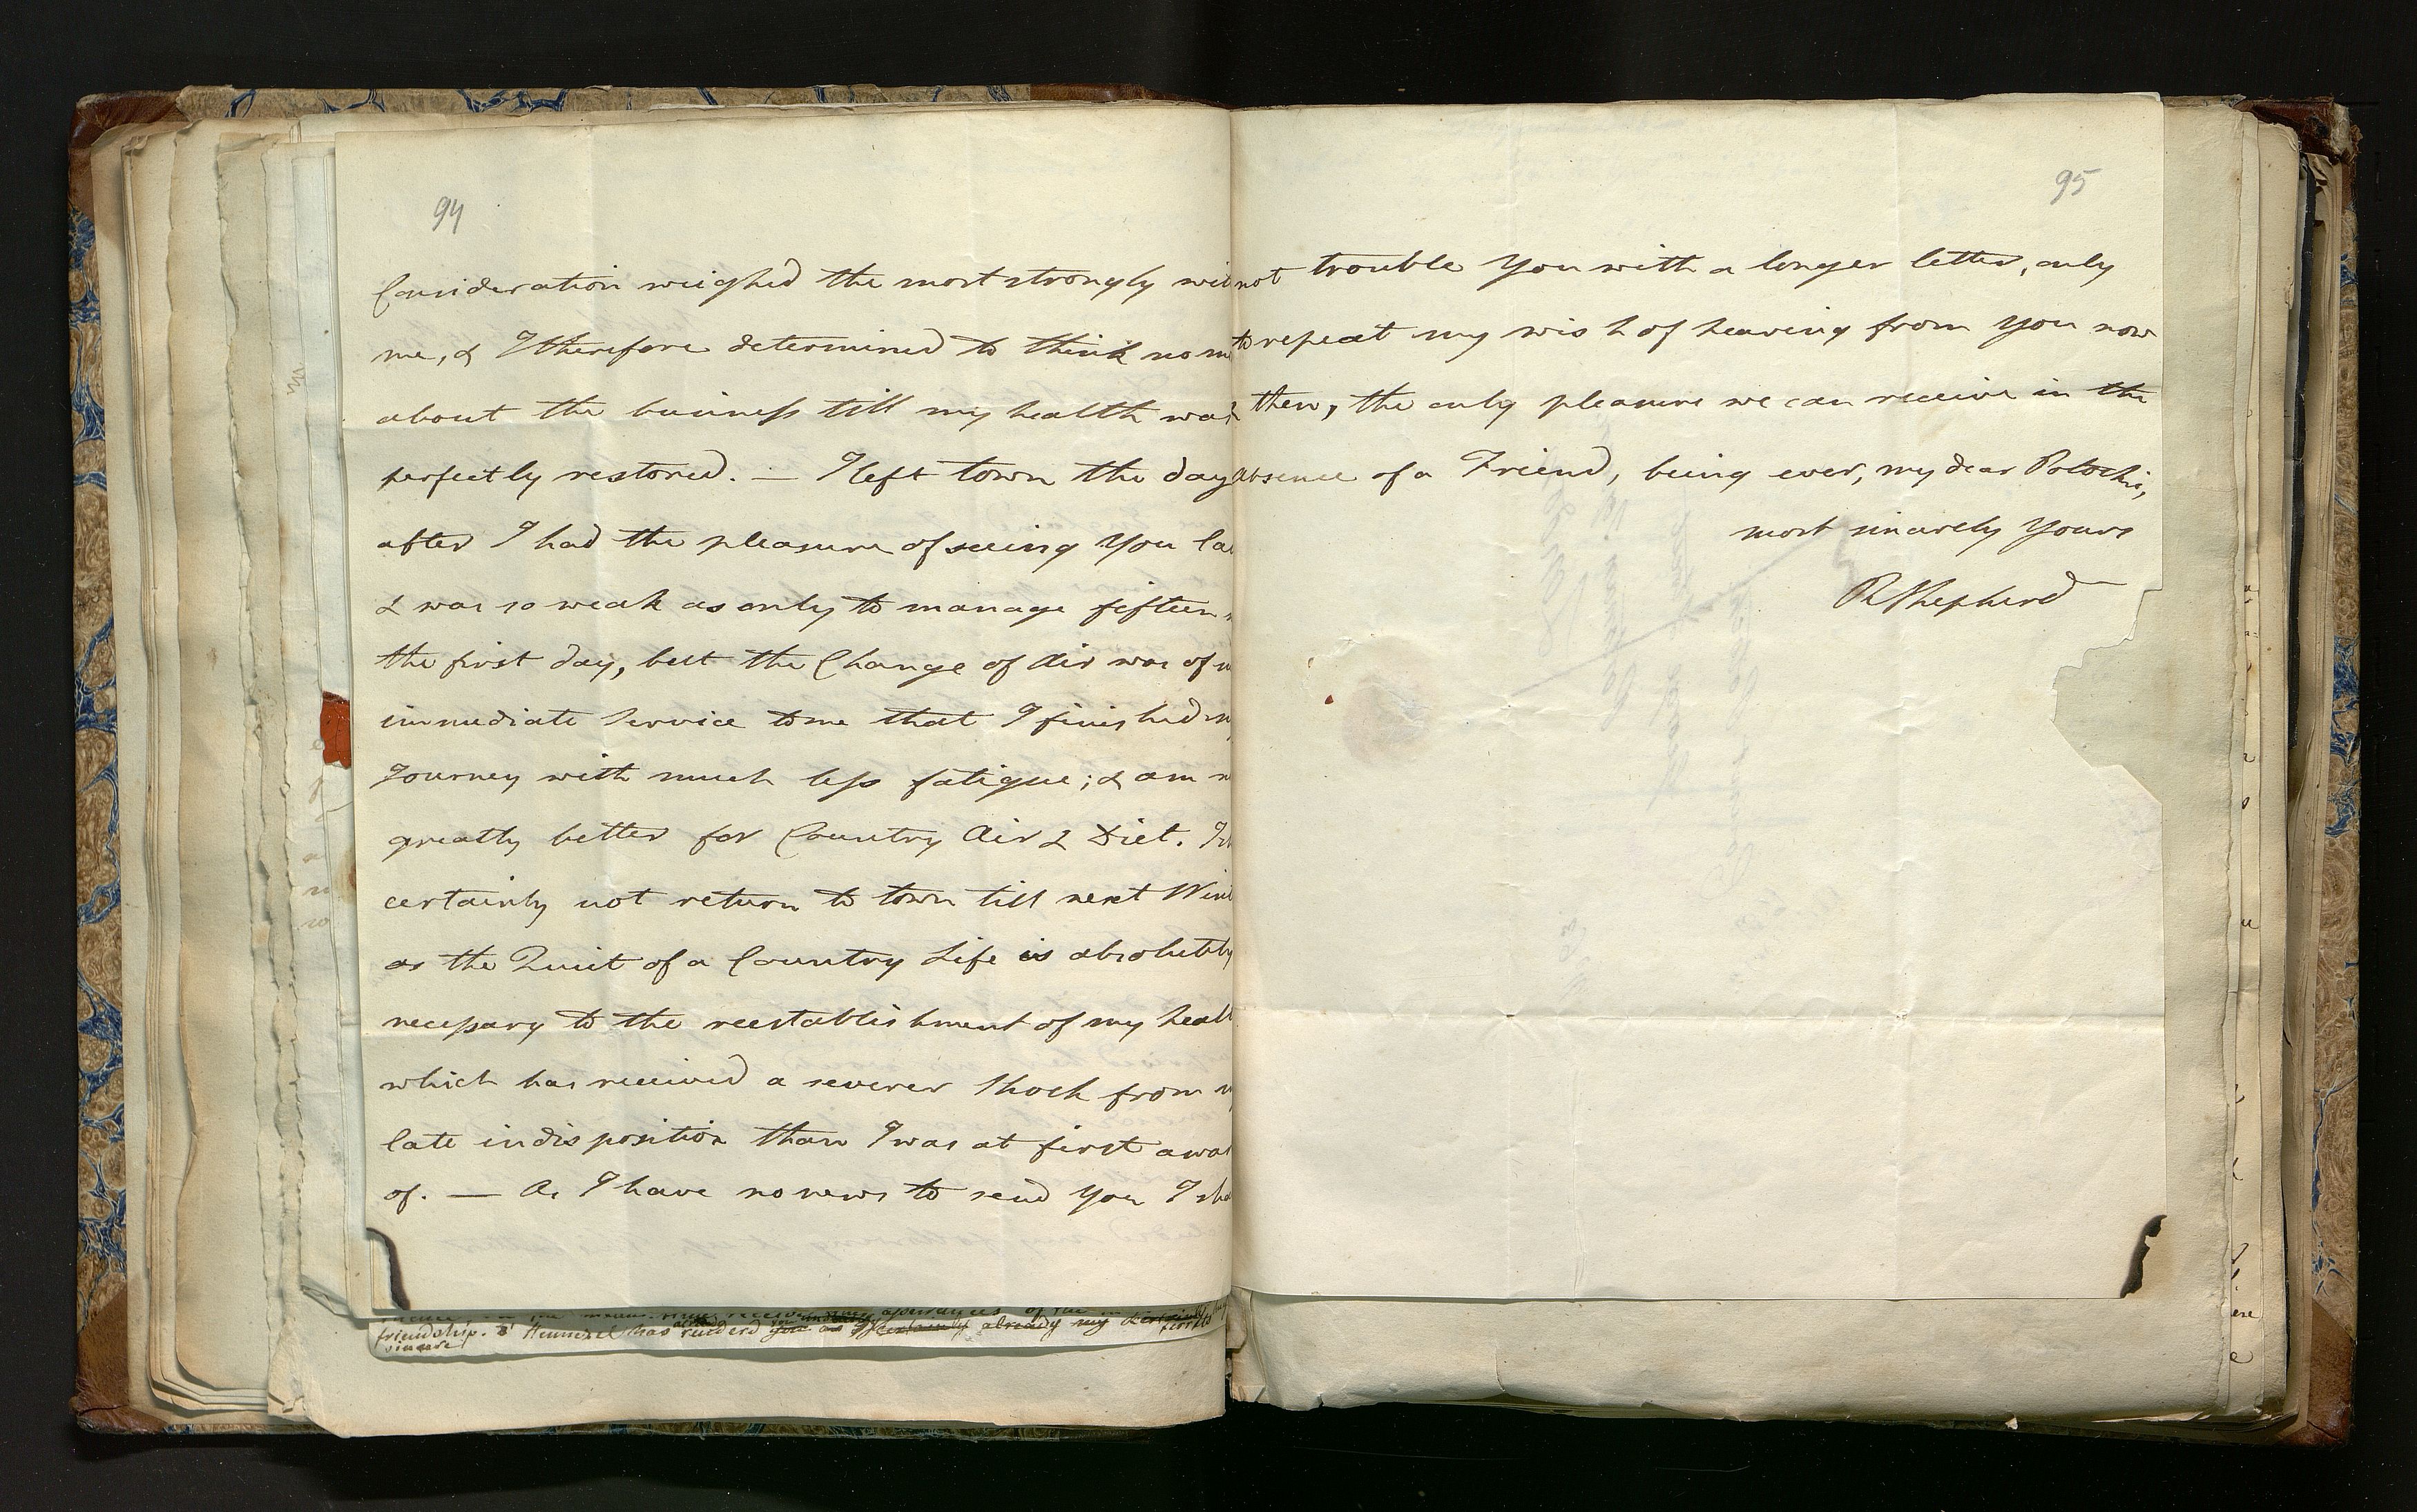 94
Consideration weighed the most strongly wit
me, & I therefore determined to think no m
about the business till my health was
perfectly restored. — I left town the day
after I had the pleasure of seeing you la
& was so weak as only to manage fifteen
the first day, but the Change of Air was of
immediate Service to me that I finished m
Journey with much less fatigue; & am n
greatly better for Country Air & Diet. I sh
certainly not return to town till next Wint
as the Quiet of a Country Life is absolutely
necessary to the reestablishment of my healt
which has received a severer Shock from m
late indisposition than I was at first awar
of. — As I have no news to send you I sha
friendship.
sincere
already my
95
not trouble you with a longer letter, only
to repeat my wish of hearing from you now
then, the only pleasure we can receive in the
absence of a Friend, being ever, my dear Potochi,
most sincerely yours
R Shepherd